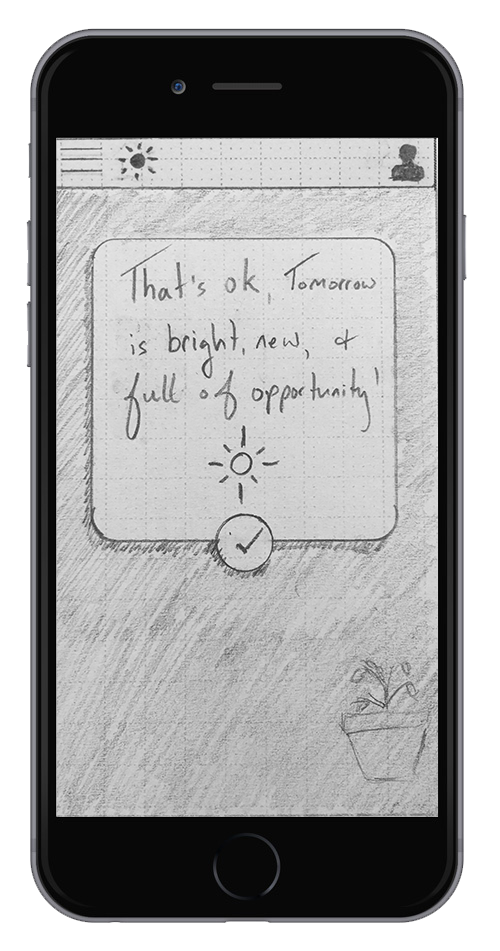 That's ok, Tomorrow
is bright, new, &
full of opportunity!